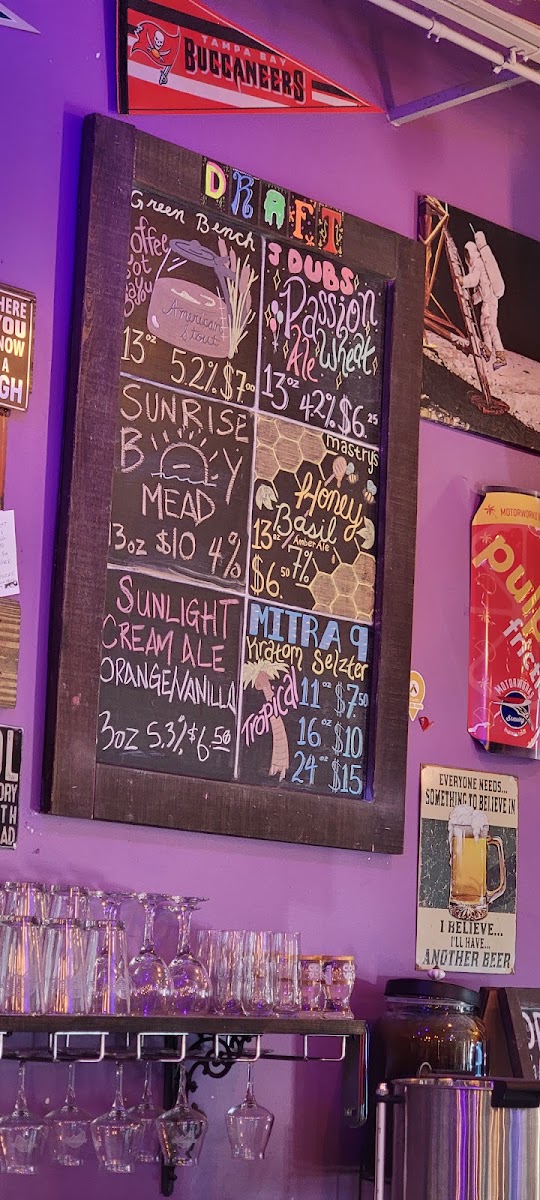 TAMPA BAY
BUCCANEERS
DRAFT
Green Bench
Coffee
Pot
Bayou
American
Stout
13oz 5.2% $7.00
J DUBS
Passion
Wheat
Ale
13oz 4.2% $6.25
SUNRISE
BOY
MEAD
13oz $10 4%
mastrys
Honey
Basil
Amber Ale
13oz 7%
$6.50
SUNLIGHT
CREAM ALE
ORANGE/VANILLA
3oz 5.3% $6.50
MITRA 9
Kratom Selzter
Tropical
11oz $7.50
16oz $10
24oz $15
HERE
YOU
NOW
A
GH
MOTORWORKS
pulp
MOTORWORKS
EVERYONE NEEDS...
SOMETHING TO BELIEVE IN
I BELIEVE...
I'LL HAVE...
ANOTHER BEER
OL
ORY
TH
AD